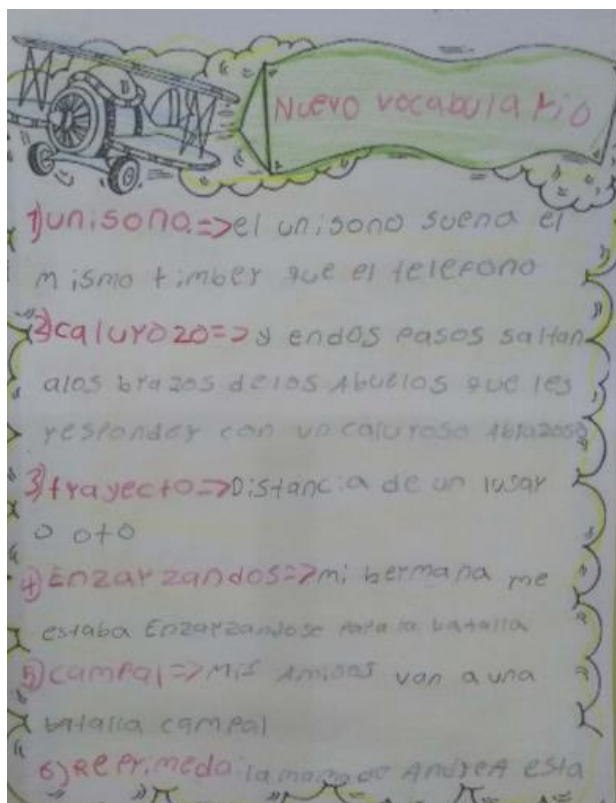 Nuevo vocabulario
1) unisono => el unisono suena el
mismo timber que el telefono
2) caluyozo => y endos pasos saltan
alos brazos delos Abuelos que les
responder con un caluroso Abrazoso
3) trayecto => Distancia de un lusar
o oto
4) Enzarzandos => mi bermana me
estaba Enzarzandose para la batalla
5) campal => Mis Amigos van a una
batalla campal
6) Reprimeda la mama de Andrea esta